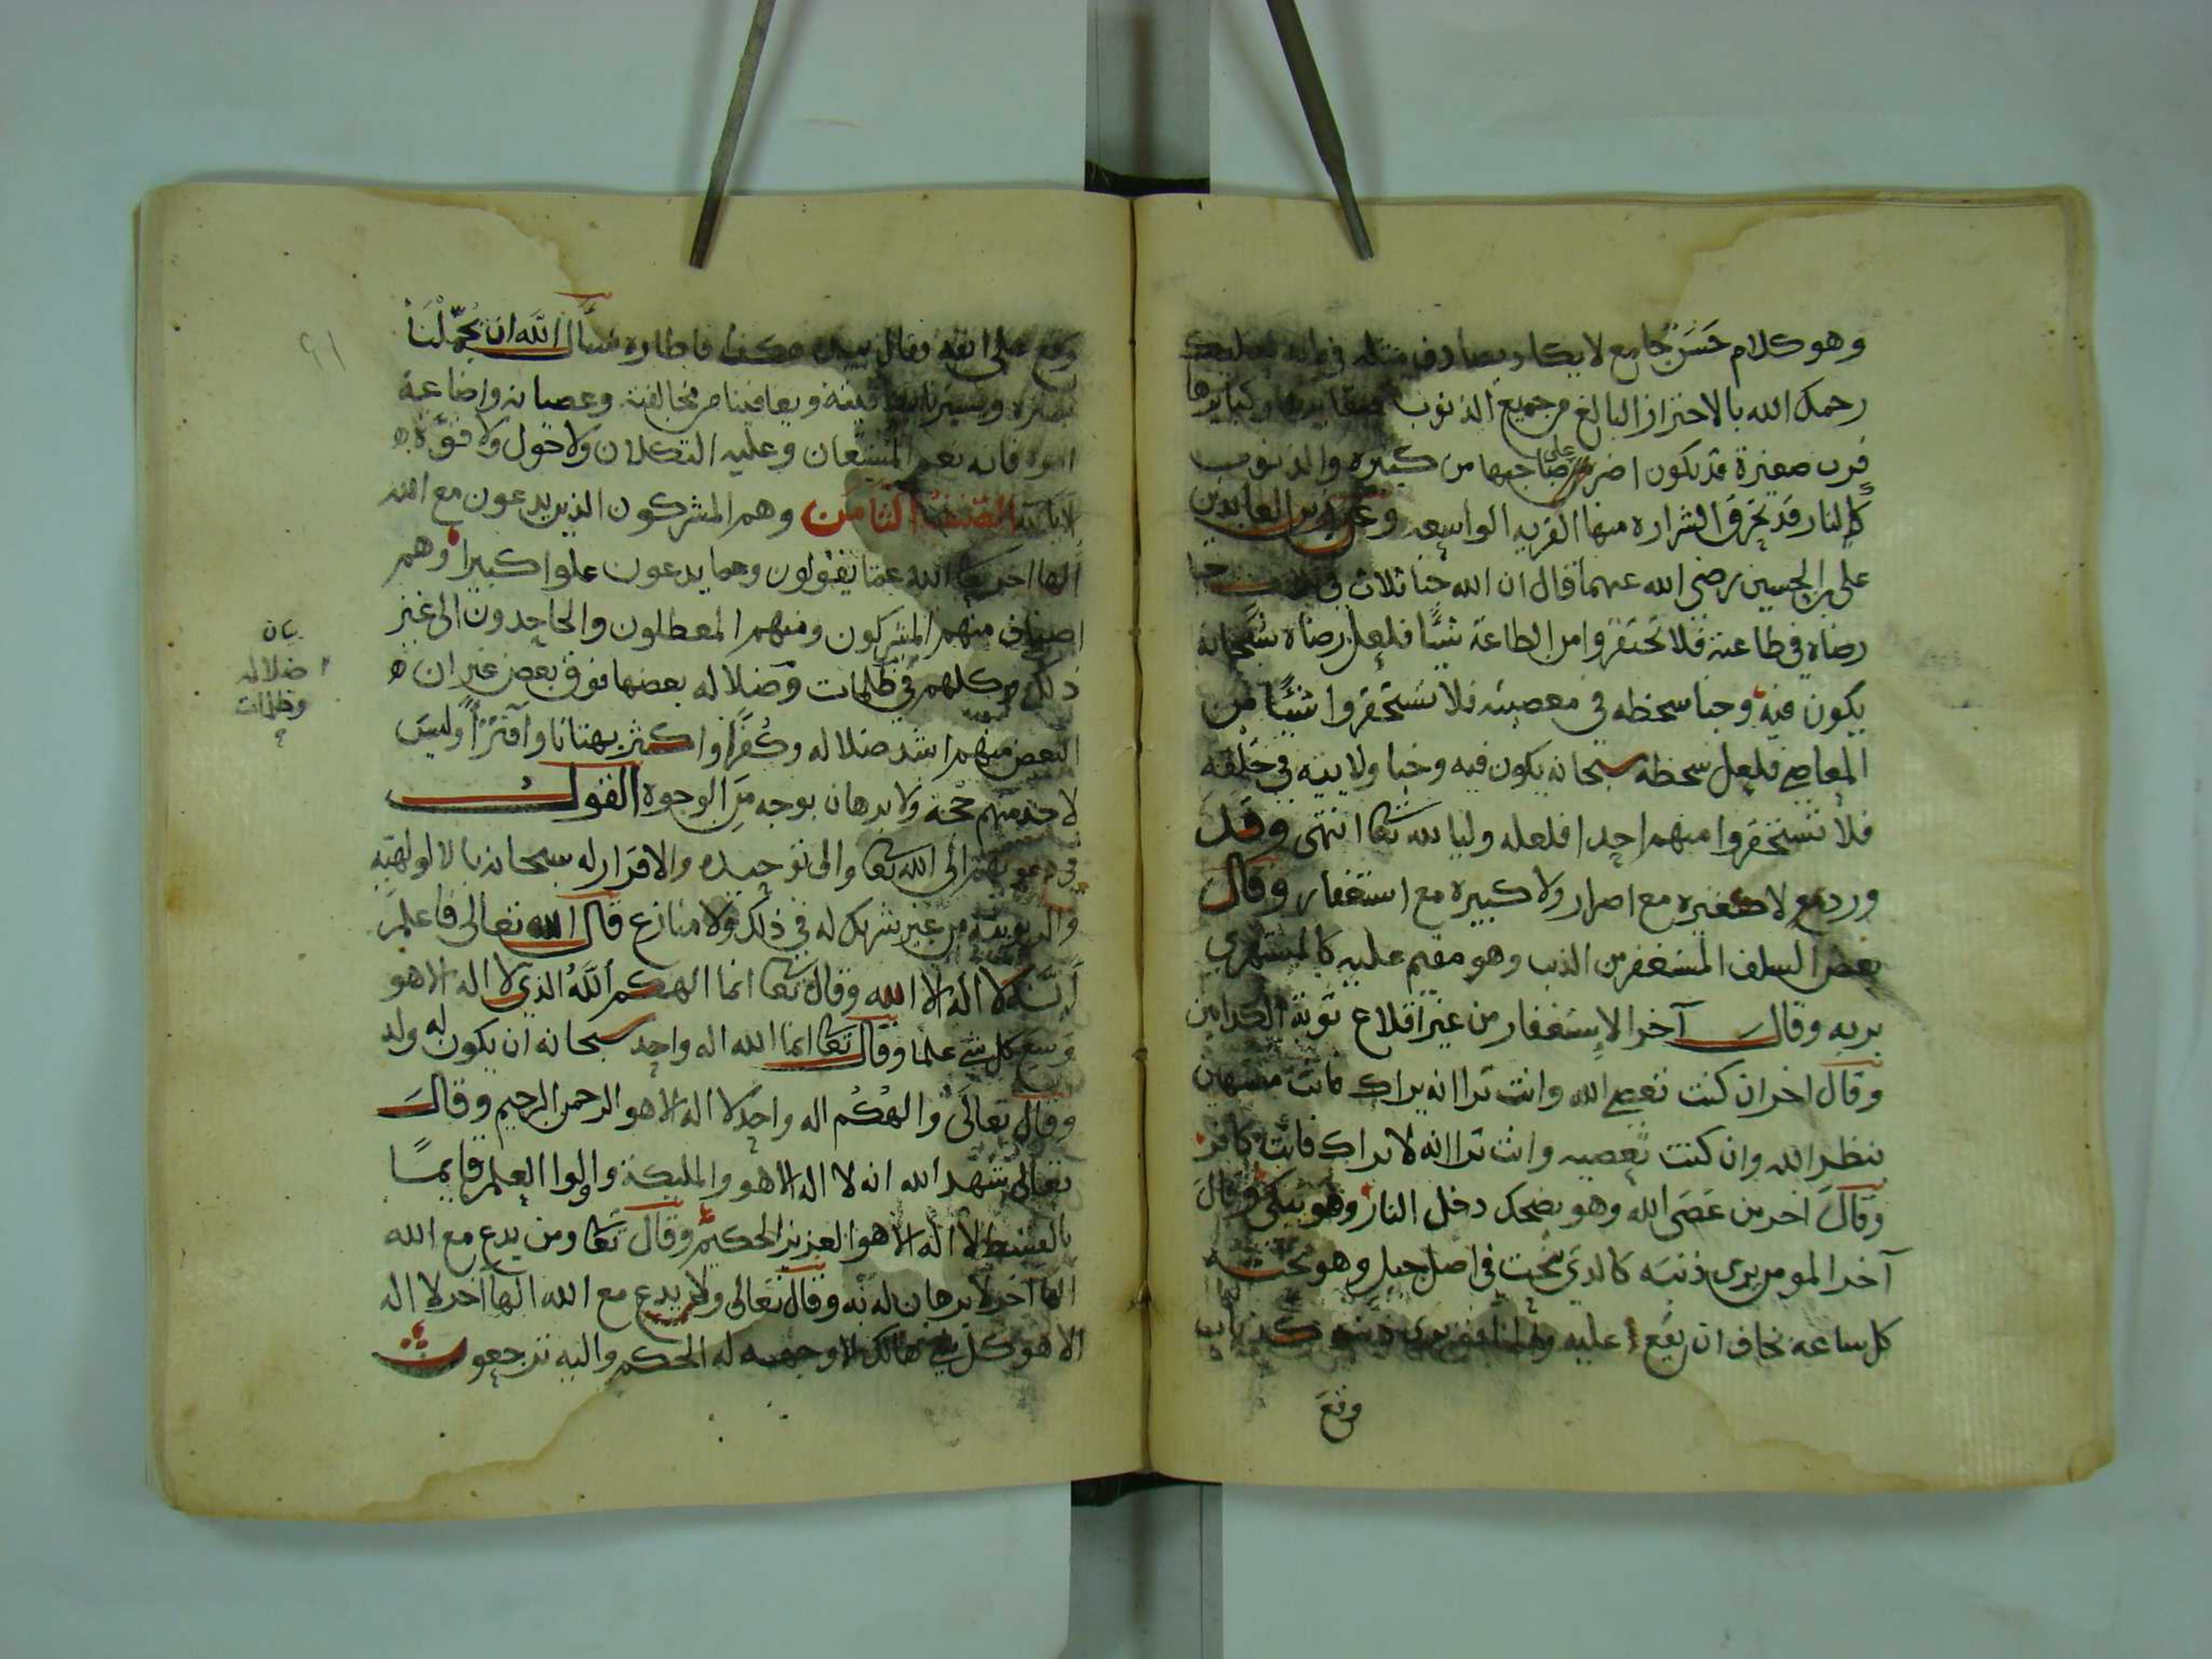 وهو كلام حسن جامع لا يكاد يصادف مثله في بابه فعليك
رحمك الله بالاحتراز البالغ من جميع الذنوب صغايرها وكبايرها
فرب صغيرة قد تكون اضر على صاحبها من كبيرة والذنوب
كالنار قد تحرق الشراره منها القريه الواسعه وعن زين العابدين
علي بن الحسين رضي الله عنهما قال ان الله خبا ثلاث في ثلاث خبا
رضاه في طاعته فلا تحتقروا من الطاعة شيًا فلعل رضاه سبحانه
يكون فيه وخبا سخطه في معصيته فلا تستحقروا شيًا من
المعاصي فلعل سخطه سبحانه يكون فيه وخبا ولايته في خلقه
فلا تستحقروا منهم احدا فلعله وليا لله تعا انتهى وقد
ورد لا صغيره مع اصرار ولا كبيره مع استغفار وقال
بعض السلف المستغفر من الذنب وهو مقيم عليه كالمستهزي
بربه وقال آخر الإستغفار من غير اقلاع توبة الكذابين
وقال اخر ان كنت تعصي الله وانت ترا انه يراك فانت مستهين
بنظر الله وان كنت تعصيه وانت ترا انه لا يراك فانت كافر
وقال اخر من عَصَى الله وهو يضحك دخل النار وهو يبكي وقال
آخر المومن يرى ذنبه كالذي تحت في اصل جبل وهو تحته
كل ساعه يخاف ان يقع عليه والمنافق يرى ذنبه كذباب
وقع
وقع على انفه فقال بيده هكذا فاطاره نسأل الله ان يجمّلنا
بستره ويعافينا من مخالفته وعصيانه واضاعة
امره فانه نعم المستعان وعليه التكلان ولا حول ولا قوّة
الا بالله الصنف الثامن وهم المشركون الذين يدعون مع الله
الها اخر تعا الله عما يقولون وعما يدعون علوا كبيرا وهم
اصناف منهم المشركون ومنهم المعطلون والجاحدون الى غير
ذلك وكلهم في ظلمات وضلاله بعضها فوق بعض غير ان
البعض منهم اشد ضلاله وكُفرًا واكثر بهتانا وآفترًا وليس
لاحد منهم حجة ولا برهان بوجه مِن الوجوه القول
في دعوتهم الى الله تعا والى توحيده والاقرار له سبحانه بالالوهيّه
والربوبية من غير شريك له في ذلك ولا منازع قال الله تعالى فاعلم
أنه لا اله الا الله وقال تعا انما الهكم اللَّهُ الذي لا اله الا هو
وسع كل شي علما وقال تعا انما الله اله واحد سبحانه ان يكون له ولد
وقال تعالى والهكُم اله واحد لا اله الا هو الرحمن الرحيم وقال
تعالى شهد الله انه لا اله الا هو والمليكة واولوا العلم قايمًا
بالقسط لا اله الا هو العزيز الحكيم وقال تعا ومن يدع مع الله
الها اخر لا برهان له به وقال تعالى ولا يدع مع الله الها اخر لا اله
الا هو كل شي هالك الا وجهه له الحكم واليه ترجعون
بيان
ضلاله
وظلمات
٦١